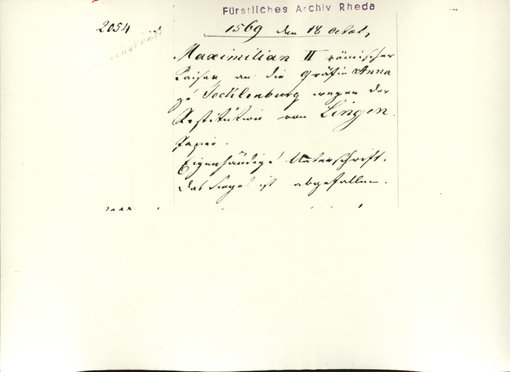 Fürstliches Archiv Rheda
2054
1569 den 18 octob,
Maximilian II römischer
Kaiser, an die Gräfin Anna
zu Tecklenburg wegen der
Restitution von Lingen.
Papier.
Eigenhändige Unterschrift.
Das Siegel ist abgefallen.